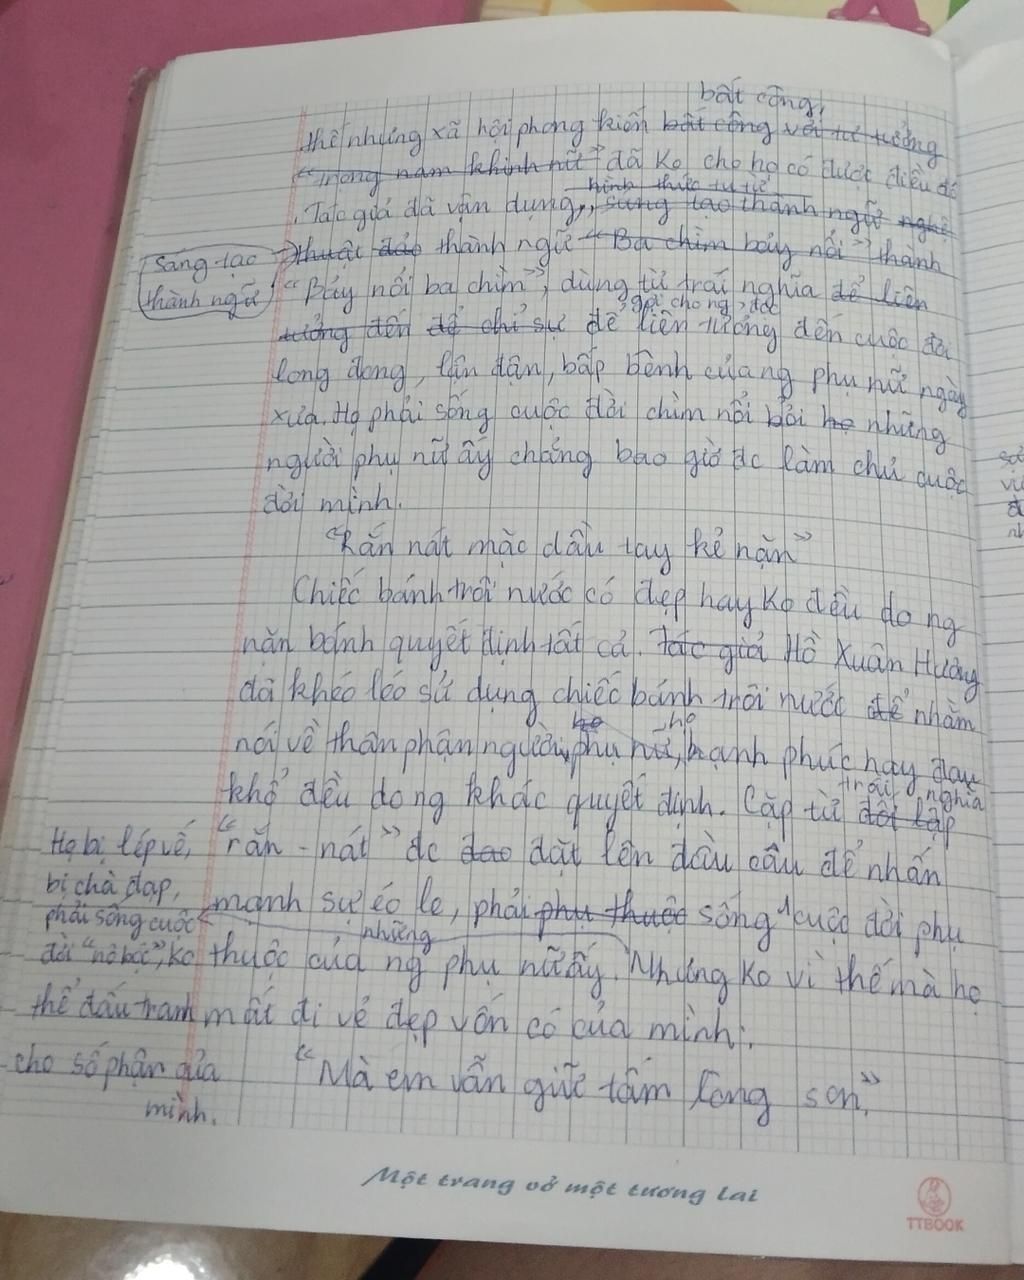 bất công,
thế nhưng xã hội phong kiến bất công với tư tưởng
"trọng nam khinh nữ" đã ko cho họ có được điều đó
hình thức tự tế
. Tác giả đã vận dụng,, sáng tạo thành ngữ nghệ
thuật đảo thành ngữ "Ba chìm bảy nổi" thành
sáng tạo
thành ngữ
"Bảy nổi ba chìm", dùng từ trái nghĩa để liên
gợi cho ng` đọc
tưởng đến để chỉ sự để liên tưởng đến cuộc đời
long đong, lận đận, bấp bênh của ng phụ nữ ngày
xưa. Họ phải sống cuộc đời chìm nổi bởi họ những
người phụ nữ ấy chẳng bao giờ đc làm chủ cuộc
đời mình.
"Rắn nát mặc dầu tay kẻ nặn"
Chiếc bánh trôi nước có đẹp hay ko đều do ng
nặn bánh quyết định tất cả. tác giả Hồ Xuân Hương
đã khéo léo sử dụng chiếc bánh trôi nước để nhằm
họ họ
nói về thân phận người phụ nữ, hạnh phúc hay đau
trái nghĩa
khổ đều do ng khác quyết định. Cặp từ đối lập
"rắn - nát" đc đảo đặt lên đầu câu để nhấn
mạnh sự éo le, phải phụ thuộc sống cuộc đời phụ
những
thuộc của ng phụ nữ ấy. Nhưng ko vì thế mà họ
mất đi vẻ đẹp vốn có của mình:
Họ bị lép vế,
bị chà đạp,
phải sống cuộc
đời "nô bộc", ko
thể đấu tranh
cho số phận của
mình.
"Mà em vẫn giữ tấm lòng son"
Một trang vở một tương lai
TTBOOK